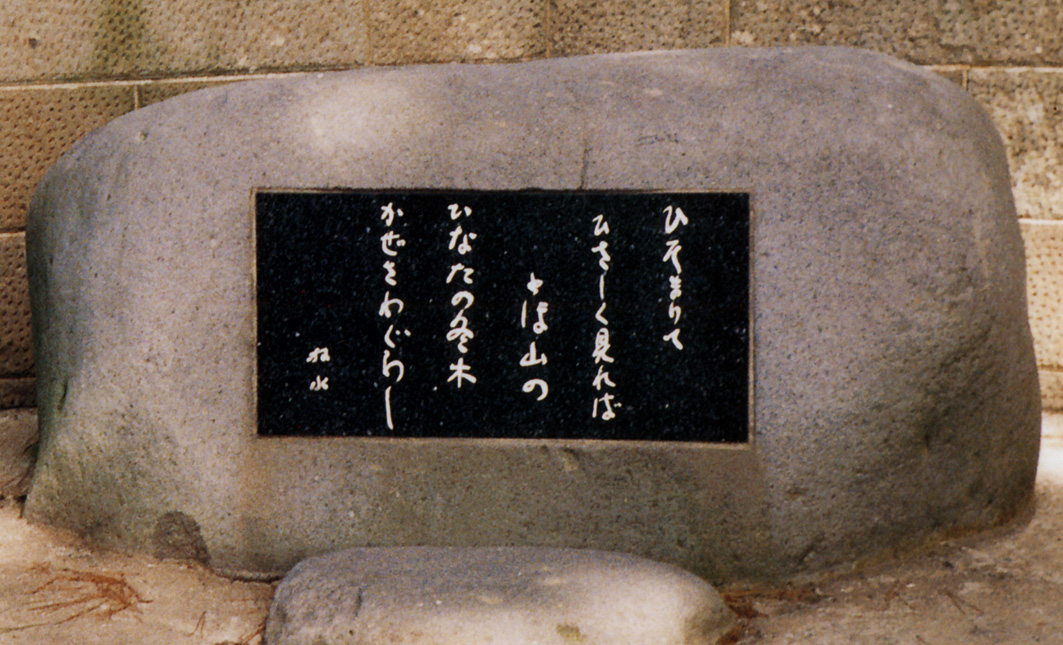 ひそまりて
ひさしく見れば
とほ山の
ひなたの冬木
かぜさわぐらし
牧水